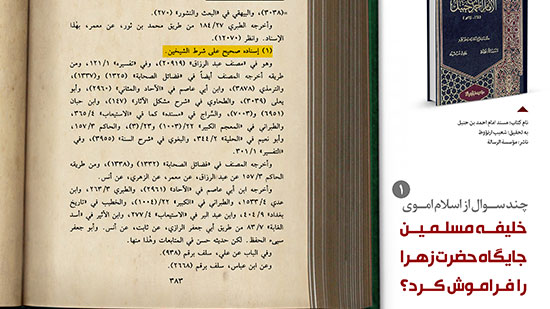 ٣٠٣٨)، والبيهقي في «البعث والنشور» (٢٧٠).
وأخرجه الطبري ١٨٤/٢٧ من طريق محمد بن ثور، عن معمر، بهذا
الإسناد. وانظر (١٢٠٧٠).
(١) إسناده صحيح على شرط الشيخين.
وهو في «مصنف عبد الرزاق» (٢٠٩١٩)، وفي «تفسيره» ١٢١/١، ومن
طريقه أخرجه المصنف أيضاً في «فضائل الصحابة» (١٣٢٥) و(١٣٣٧)،
والترمذي (٣٨٧٨)، وابن أبي عاصم في «الآحاد والمثاني» (٢٩٦٠)، وأبو
يعلى (٣٠٣٩)، والطحاوي في «شرح مشكل الآثار» (١٤٧)، وابن حبان
(٦٩٥١) و(٧٠٠٣)، والسَّراج في «مسنده» كما في «الاستيعاب» ٣٦٥/٤،
والطبراني في «المعجم الكبير» ٢٢/(١٠٠٣) و٢٣/(٣)، والحاكم ١٥٧/٣،
وأبو نعيم في «الحلية» ٣٤٤/٢، والبغوي في «شرح السنة» (٣٩٥٥)، وفي
«التفسير» ٣٠١/١.
وأخرجه المصنف في «فضائل الصحابة» (١٣٣٢) و(١٣٣٨)، ومن طريقه
الحاكم ١٥٧/٣ عن عبد الرزاق، عن معمر، عن الزهري، عن أنس.
وأخرجه ابن أبي عاصم في «الآحاد» (٢٩٦١)، والطبري ٢٦٣/٣، وابن
عدي ١٥٣٣/٤، والطبراني في «الكبير» ٢٢/(١٠٠٤)، والخطيب في «تاريخ
بغداد» ٤٠٤/٩، وابن عبد البر في «الاستيعاب» ٢٧٧/٤، وابن الأثير في «أسد
الغابة» ٨٣/٧ من طريق أبي جعفر الرازي، عن ثابت، عن أنس. وأبو جعفر
سيىء الحفظ. لكن حديثه حسن في المتابعات وهذا منها.
وفي الباب عن علي، سلف برقم (٩٣٨).
وعن ابن عباس، سلف برقم (٢٦٦٨).
٣٨٣
نام کتاب: مسند امام احمد بن حنبل
به تحقیق: شعیب ارنؤوط
ناشر: مؤسسة الرسالة
۱
چند سوال از اسلام اموی
خلیفه مسلمین
جایگاه حضرت زهرا
را فراموش کرد؟